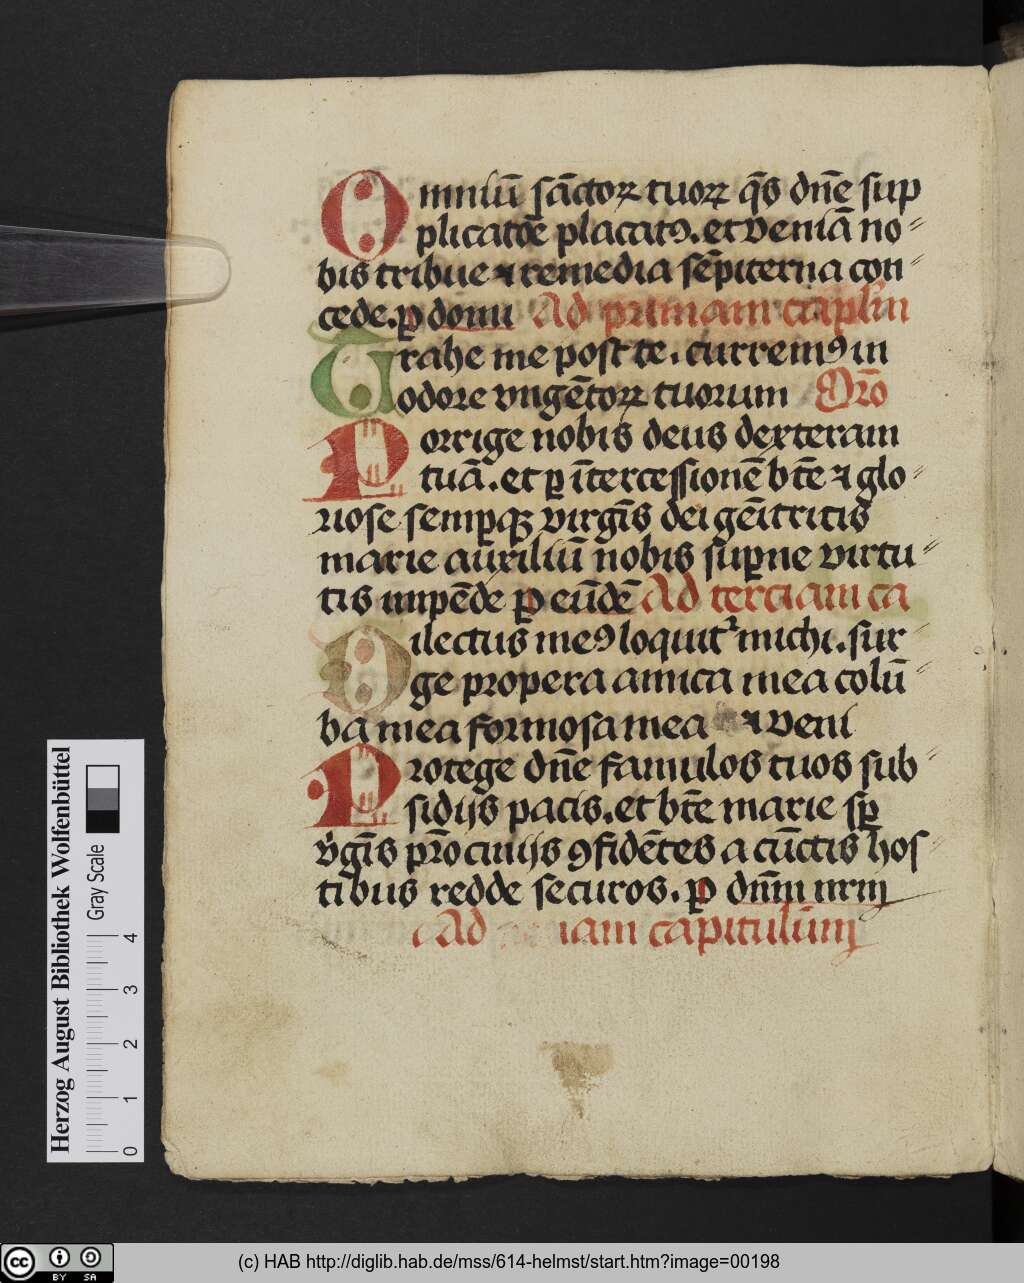 Omniū sāctoꝝ tuoꝝ q̄s dn̄e sup
plicatōe placatꝰ. et veniā no⸗
bis tribue ⁊ remedia sēpiterna con⸗
cede. ꝑ domi Ad primam caplm
Trahe me post te. curremꝰ in
odore vngētoꝝ tuorum Orō
Porrige nobis deus dexteram
tuā. et ꝑ ītercessionē bt̄e ⁊ glo⸗
riose semꝑqꝫ virgīs dei gēitricis
marie auxiliū nobis suꝑne virtu⸗
tis impēde ꝑ eūdē Ad terciam ca
Dilectus meꝰ loquit᷑ michi. sur⸗
ge propera amica mea colū⸗
ba mea formosa mea ⁊ veni
Protege dn̄e famulos tuos sub⸗
sidijs pacis. et bt̄e marie sꝑ
v̓gīs pr̄ocinijs ꝯfidētes a cūctis hos⸗
tibus redde securos. ꝑ dn̄m nrm
Ad iam capitulum
Herzog August Bibliothek Wolfenbüttel
Gray Scale
0 1 2 3 4
cc BY SA
(c) HAB http://diglib.hab.de/mss/614-helmst/start.htm?image=00198